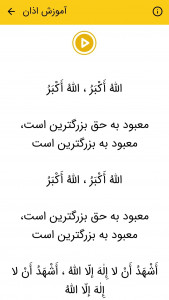 آموزش اذان
اللهُ أَكْبَرُ ، اللهُ أَكْبَرُ
معبود به حق بزرگترین است،
معبود به بزرگترین است
اللهُ أَكْبَرُ ، اللهُ أَكْبَرُ
معبود به حق بزرگترین است،
معبود به بزرگترین است
أَشْهَدُ أَنْ لا إِلٰهَ إلّا اللهُ ، أَشْهَدُ أَنْ لا
إِلٰهَ إلّا اللهُ